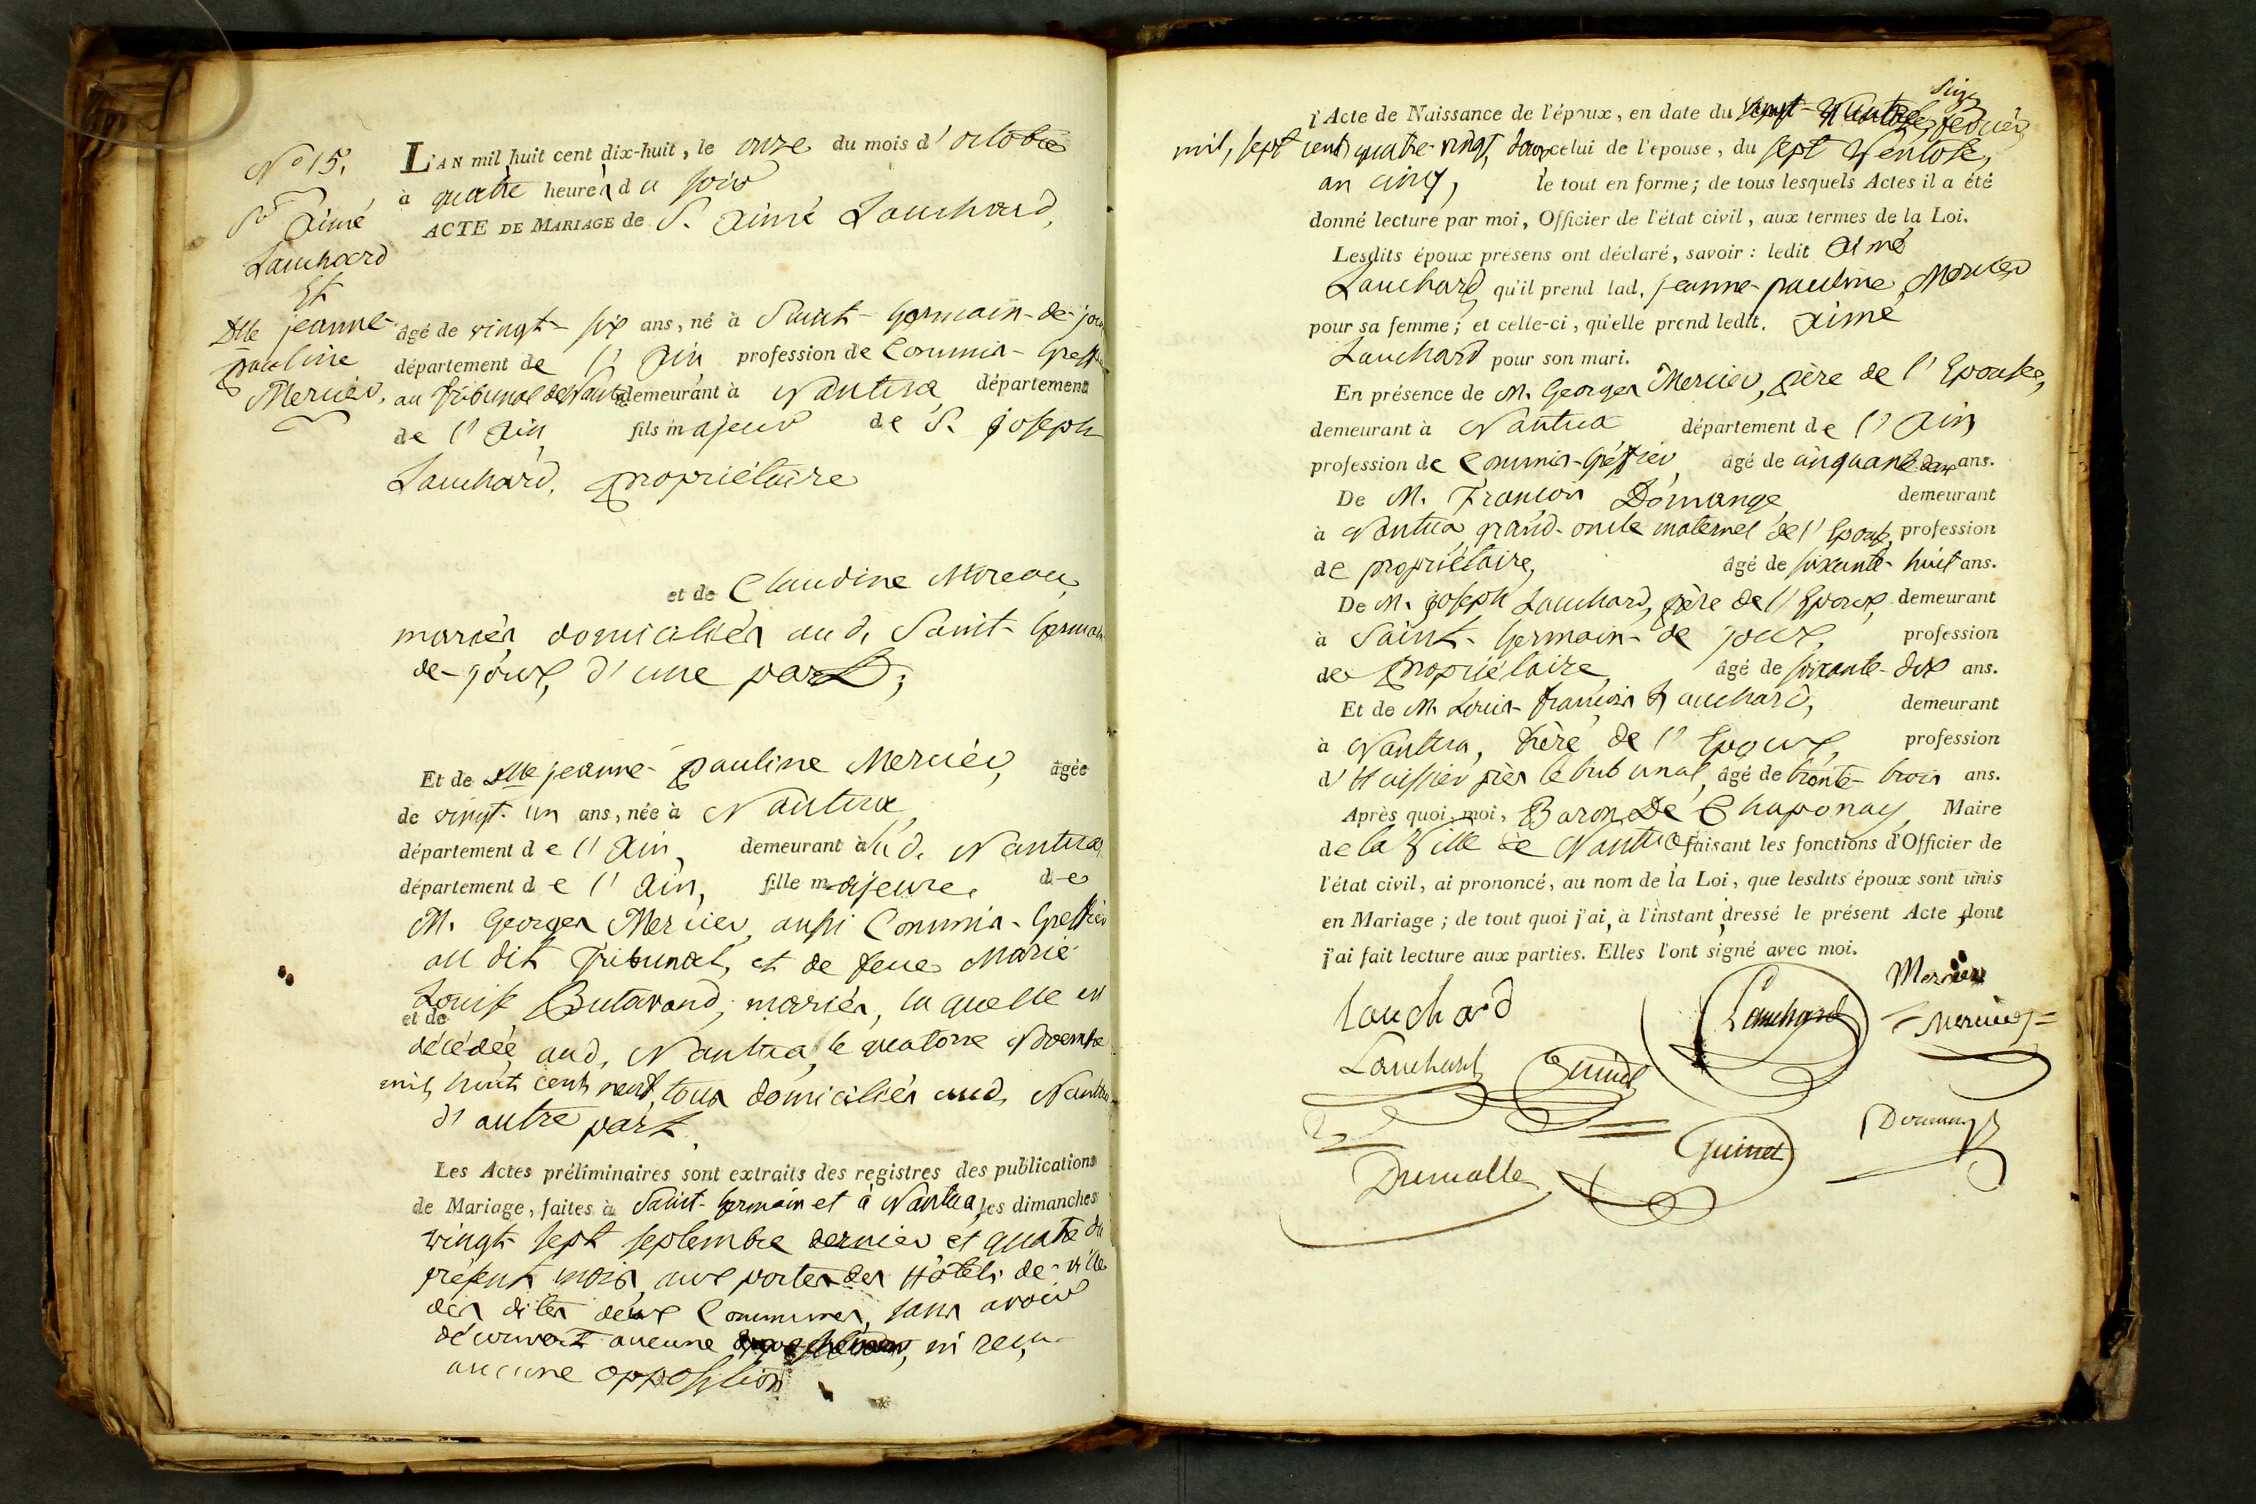 N° 15.
Sr Aimé
Lauchard
Et
Dlle jeanne-
pauline
Mercier.
L'AN mil huit cent dix-huit, le onze du mois d'octobre
à quatre heures du soir
ACTE DE MARIAGE de S. Aimé Lauchard,
âgé de vingt-six ans, né à Saint-Germain-de-joux
département de l'Ain profession de Commis-Greffier
au Tribunal de Nantua demeurant à Nantua département
de l'Ain, fils majeur de S. joseph
Lauchard, propriétaire
et de Claudine Moreau,
mariés, domiciliés aud. Saint-Germain
de-joux, d'une part;
Et de Dlle jeanne-pauline Mercier, âgée
de vingt-un ans, née à Nantua,
département de l'Ain, demeurant aud. Nantua,
département de l'Ain, fille majeure, de
M. Georges Mercier, aussi Commis-Greffier
au dit Tribunal, et de feue Marie-
Louise Butavand, mariés, la quelle est
et de
décédée aud. Nantua, le quatorze Novembre
mil huit cent neuf, tous domiciliés aud. Nantua
d'autre part.
Les Actes préliminaires sont extraits des registres des publications
de Mariage, faites à Saint-Germain et à Nantua, les dimanches
vingt-sept septembre dernier et quatre du
présent mois, aux portes des Hôtels-de-ville
des dites deux Communes, sans avoir
découvert aucune, ni reçu
aucune opposition
l'Acte de Naissance de l'époux, en date du seize février
mil, sept cent quatre-vingt, douze celui de l'epouse, du sept Ventose,
an cinq, le tout en forme; de tous lesquels Actes il a été
donné lecture par moi, Officier de l'état civil, aux termes de la Loi.
Lesdits époux présens ont déclaré, savoir: ledit Aimé
Lauchard qu'il prend lad. jeanne-pauline Mercier
pour sa femme; et celle-ci, qu'elle prend ledit. Aimé
Lauchard pour son mari.
En présence de M. Georges Mercier, père de l'Epouse,
demeurant à Nantua département de l'Ain
profession de Commis-Greffier âgé de cinquante deux ans.
De M. François Domange demeurant
à Nantua, grand-oncle maternel de l'Epouse, profession
de propriétaire, âgé de soixante-huit ans.
De M. joseph Lauchard, père de l'Epoux, demeurant
à Saint-Germain-de joux, profession
de propriétaire âgé de soixante-dix ans.
Et de M. Louis-françois Lauchard, demeurant
à Nantua, frère de l'Epoux, profession
d'Huissier près le tribunal, âgé de trente-trois ans.
Après quoi, moi, Baron De Chaponay, Maire
de la Ville de Nantua faisant les fonctions d'Officier de
l'état civil, ai prononcé, au nom de la Loi, que lesdits époux sont unis
en Mariage; de tout quoi j'ai, à l'instant, dressé le présent Acte, dont
j'ai fait lecture aux parties. Elles l'ont signé avec moi.
Lauchard Lauchard Mercier
Mercier
Lauchard Guinet
Guinet Domange